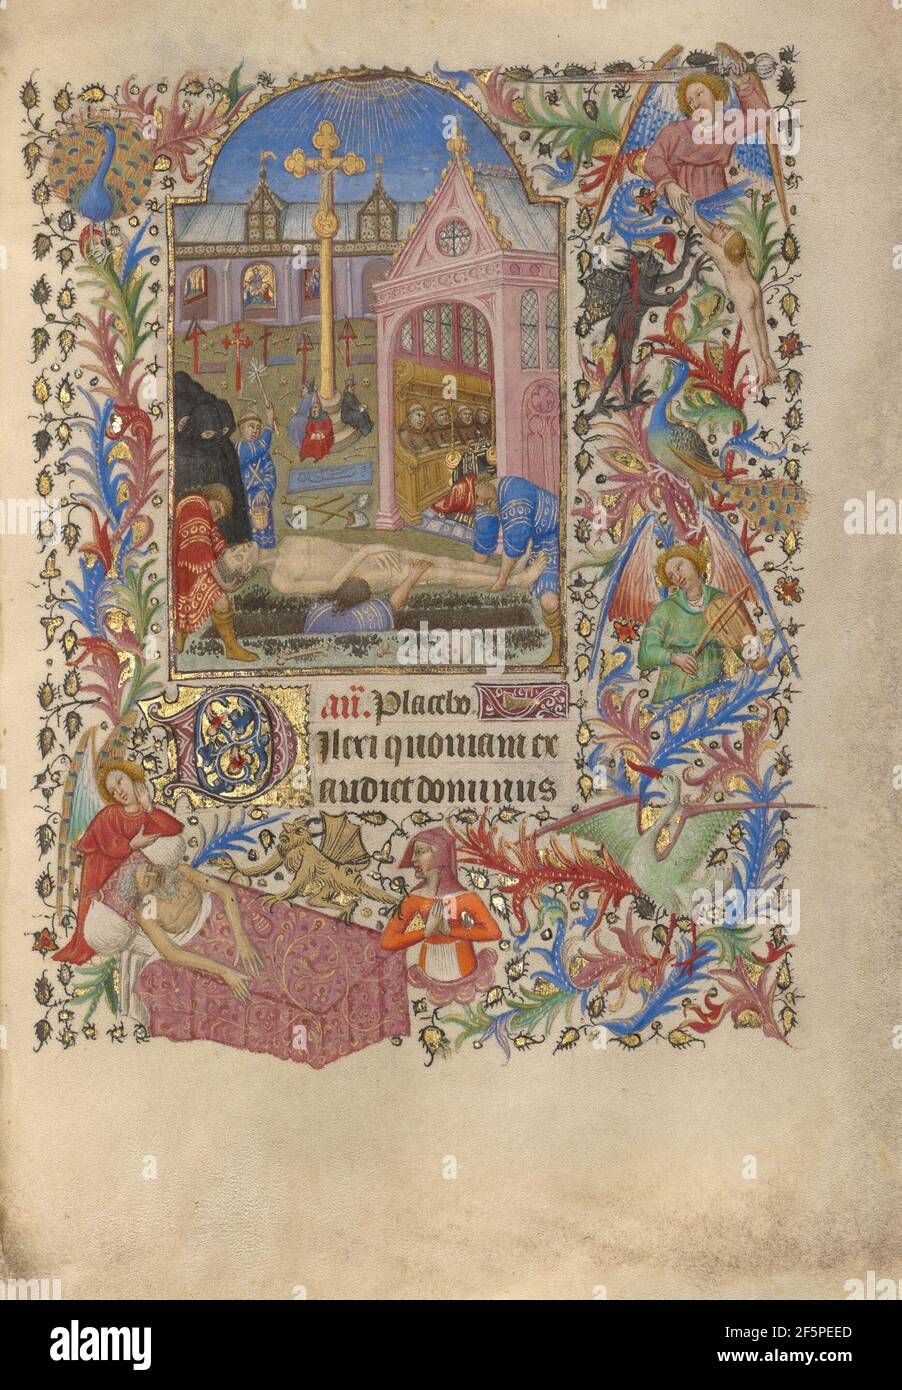 añ. Placebo.
Dilexi quoniam ex
audiet dominus
alamy
alamy
Image ID: 2F5PEED
www.alamy.com